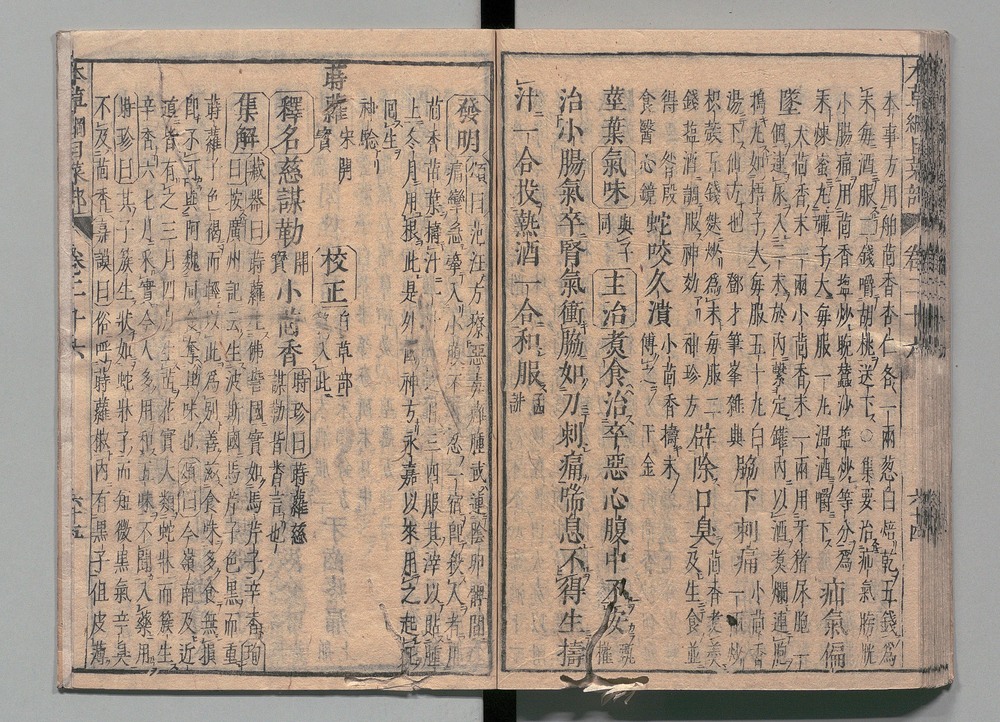 本草綱目菜部
卷二十六
六十四
本事方用舶茴香杏仁各一兩葱白焙乾五錢爲
末每酒服二錢嚼胡桃送下○集要治疝氣膀胱
小腸痛用茴香鹽炒晚蠶沙鹽炒等分爲
末煉蜜丸彈子大每服一丸温酒嚼下 疝氣偏
墜 大茴香末一兩小茴香末一兩用牙猪尿胞一
個連尿入二末於内繫定罐内以酒煮爛連胞
搗丸如梧子大每服五十丸白
湯下仙方也 鄧才筆峯雜興 脇下刺痛 小茴香一兩炒
枳殻五錢麩炒爲末每服二
錢鹽酒調服神効 神珍方 辟除口臭 茴香煮羮及生食並
得 昝殷食醫心鏡 蛇咬久潰 小茴香擣末傅之 千金
莖葉 氣味 與子同 主治 煮食治卒惡心腹中不安 甄權
治小腸氣卒腎氣衝脇如刀刺痛喘息不得生擣
汁一合投熱酒一合和服 孟詵
發明 頌曰范汪方療惡毒癰腫或連陰卵髀間疼
痛攣急牽入小腹不可忍一宿即殺人者用
茴香苗葉擣汁一升服之日三四服其滓以貼腫
上冬月用根此是外國神方永嘉以來用之起死
回生神驗
蒔蘿 宋開寶 校正 自草部移入此
釋名 慈謀勒 開寶 小茴香 時珍曰蒔蘿慈謀勒皆番言也
集解 藏器曰蒔蘿生佛誓國實如馬芹子辛香珣
曰按廣州記云生波斯國馬芹子色黑而重
蒔蘿子色褐而輕以此爲別善滋食味多食無損
即不可與阿魏同合奪其味也頌曰今嶺南及近
道皆有之三月四月生苗花實大類蛇牀而簇生
辛香六七月采實今人多用和五味不聞入藥用
時珍曰其子簇生狀如蛇牀子而短微黑氣辛臭
不及茴香嘉謨曰俗呼蒔蘿椒内有黑子但皮薄
本草綱目菜部
卷二十六
六十五